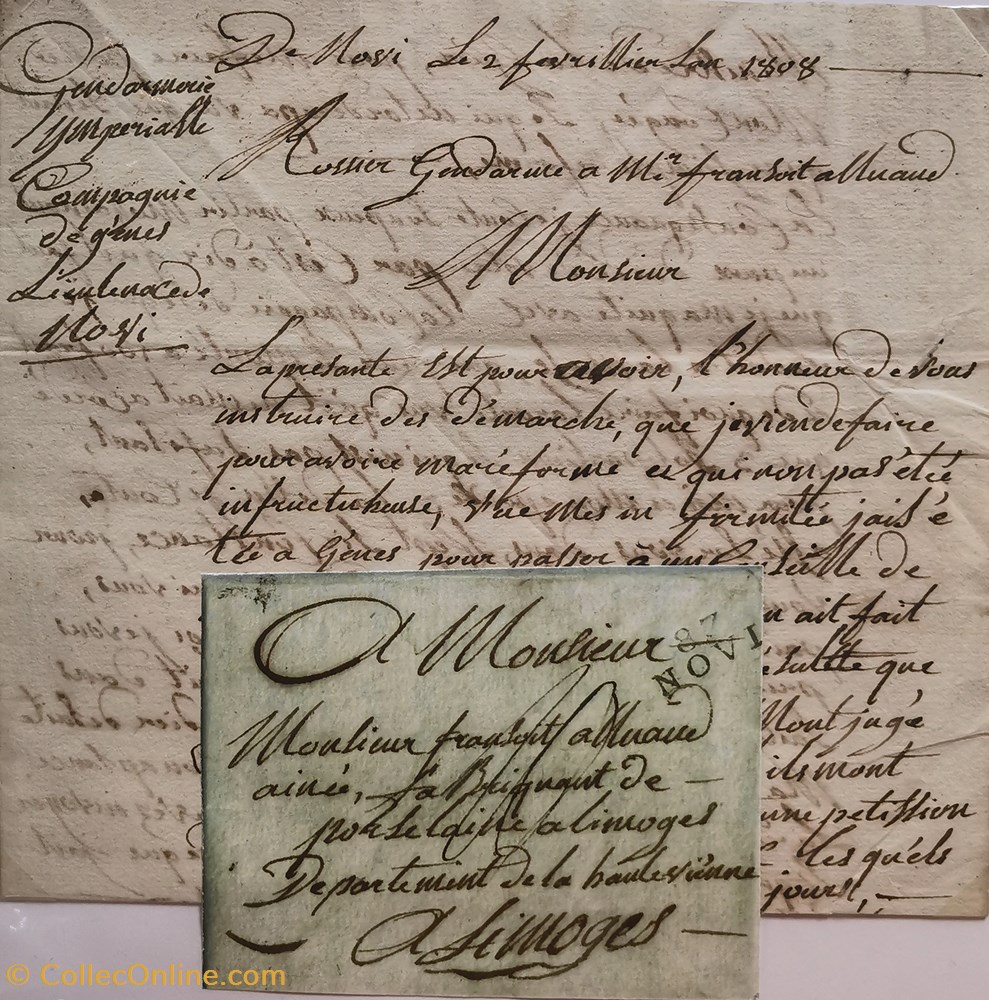 De Novi Le 2 fevrillier Lan 1808
Gendarmerie
ymperialle
Compagnie
de gênes
Lieutenacede
Novi
Rossier Gendarme a Mr. fransoit alluaud
A Monsieur
La presante Est pour avoir, l'honneur de vous
instruire des démarche, que je vien de faire
pour avoire ma réforme et qui non pas étée
infructuheuse, vue mes in firmitée jais é
tée a Gênes pour passer à un Conseille de
n ait fait
ésulte que
Mont jugé
ils mont
une petission
les quéls
jours, -
A Monsieur
87
NOVI
Monsieur fransoit alluaud
ainée, fabriquant de -
porselaine a limoges
Departement de la haute vienne
A Limoges -
© CollecOnline.com